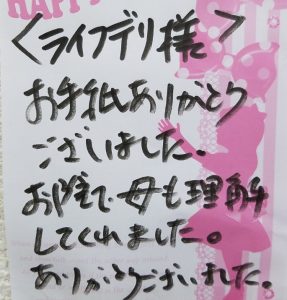 HAPPY
<ライフデリ様>
お手紙ありがとう
ございました。
お陰で母も理解
してくれました。
ありがとうございました。